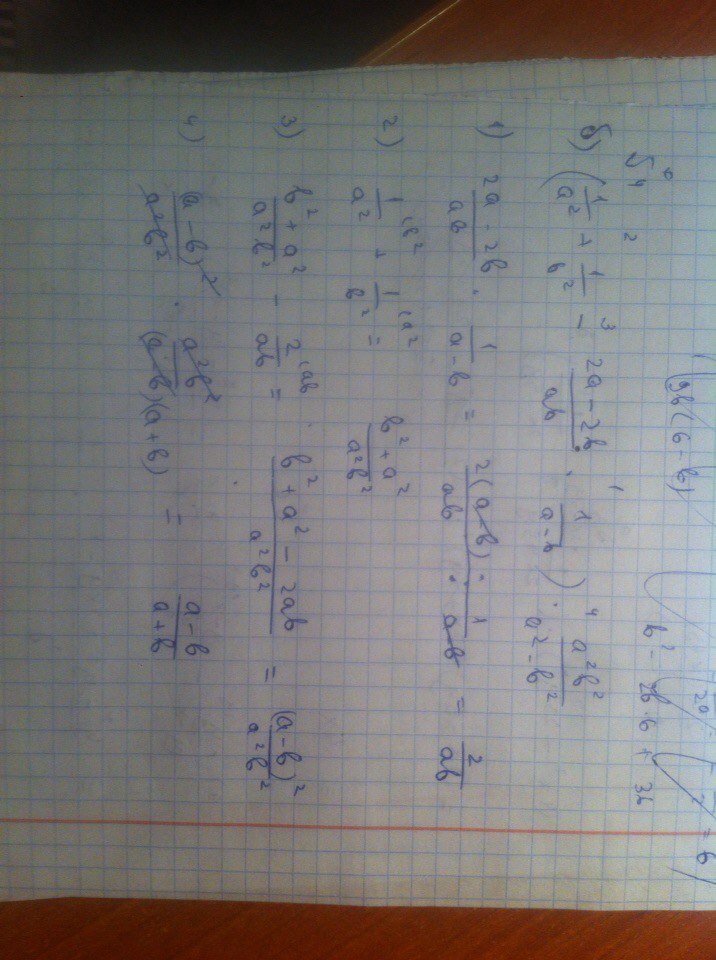 9b(6-b)
b² - 2b·6 + 36
= 6)
5ч
б) (1/a² + 1/b² - (2a-2b)/ab · 1/(a-b)) · a²b²/(a²-b²)
1) (2a-2b)/ab · 1/(a-b) = 2(a-b)·1/ab·a-b = 2/ab
2) 1/a² + 1/b² = (b²+a²)/a²b²
3) (b²+a²)/a²b² - 2/ab = (b²+a²-2ab)/a²b² = (a-b)²/a²b²
4) (a-b)²/a²b² · a²b²/(a-b)(a+b) = (a-b)/(a+b)